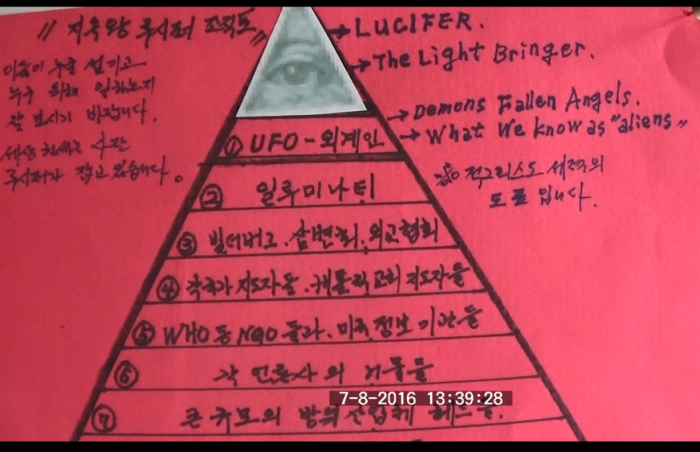 "지옥왕 루시퍼 조직도"
이들이 누굴 섬기고
누구 위해 일하는지
잘 보시기 바랍니다.
세상 권세는 사탄
루시퍼가 잡고 있습니다.
LUCIFER.
The Light Bringer.
Demons Fallen Angels.
What We know as "aliens"
적그리스도 세력의
도표 입니다.
① UFO - 외계인
② 일루미나티
③ 빌더버그. 삼변회. 외교협회
④ 각국가 지도자들. 캐톨릭교회 지도자들
⑤ WHO 등 NGO 들과. 미국 정보 기관들
⑥ 각 언론사의 거물들
⑦ 큰 규모의 방위산업체 헤드들.
7-8-2016 13:39:28